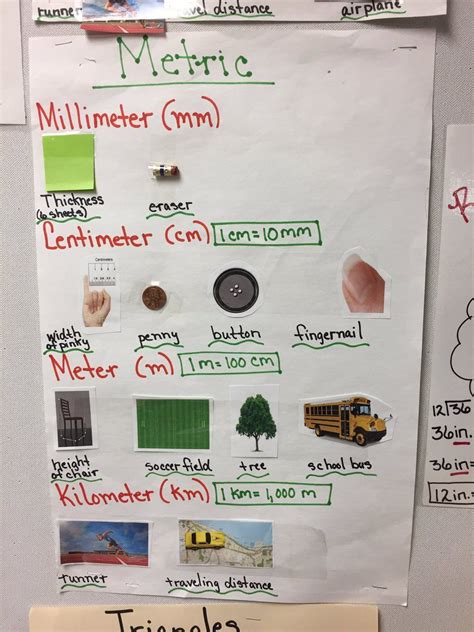 runner
travel distance
airplane
Metric
Millimeter (mm)
Thickness
(6 sheets)
eraser
Centimeter (cm) 1 cm = 10 mm
width
of pinky
penny
button
fingernail
Meter (m) 1 m = 100 cm
height
of chair
soccer field
tree
school bus
Kilometer (km) 1 km = 1,000 m
runner
traveling distance
Triangles
12 36
36 in.
36 in.
12 in.